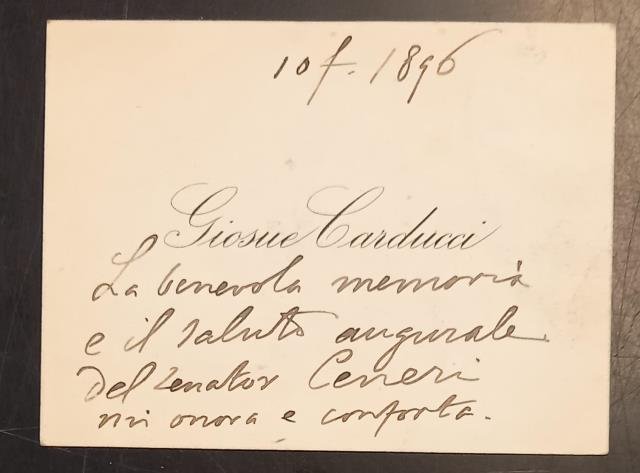 10 f. 1896
Giosue Carducci
La benevola memoria
e il saluto augurale
del senator Ceneri
mi onora e conforta.